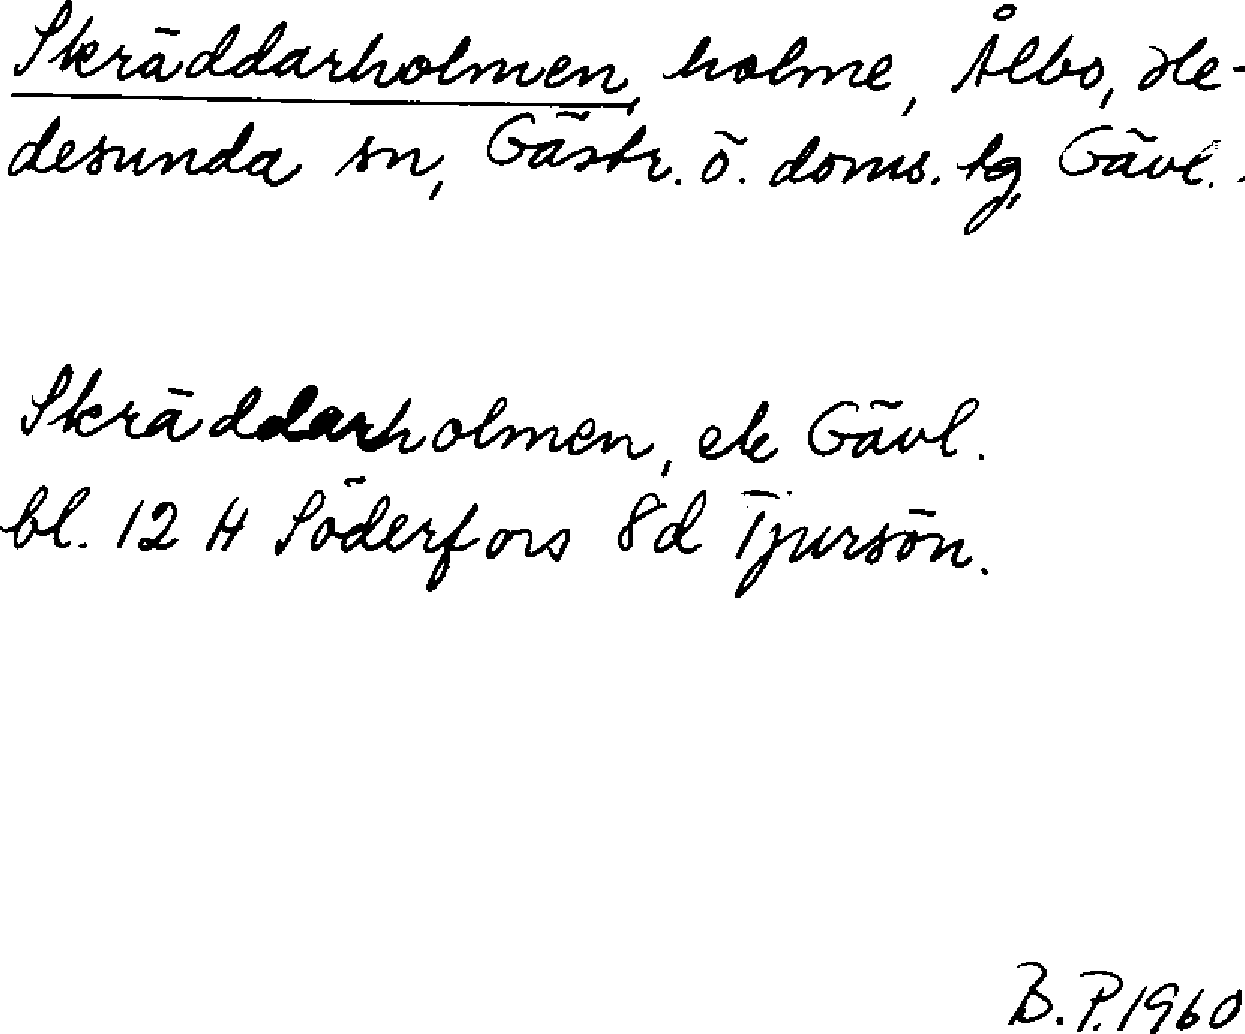 Skräddarholmen, holme, Ålbo, He-
desunda sn, Gästr. ö. doms. tg, Gävl..
Skräddarholmen, ek Gävl.
bl. 12 H Söderfors 8d Tjursön.
B.P.1960